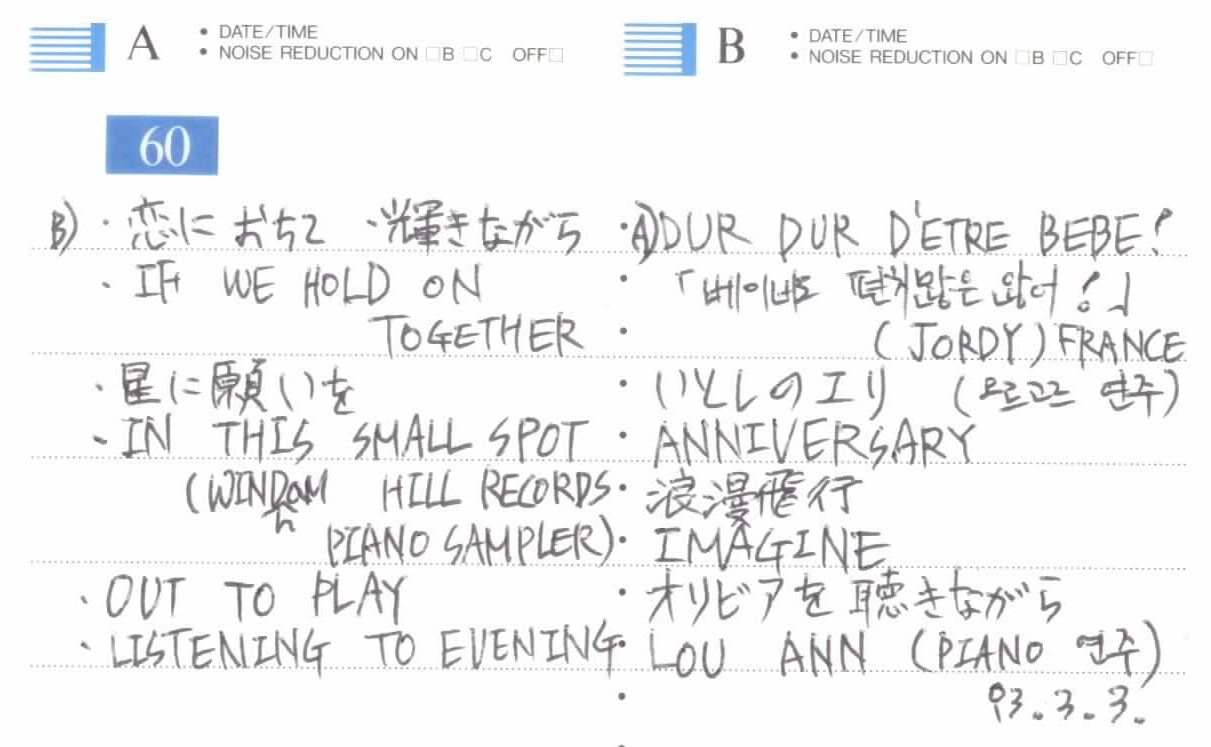 A
• DATE/TIME
• NOISE REDUCTION ON □B □C OFF□
B
• DATE/TIME
• NOISE REDUCTION ON □B □C OFF□
60
B) · 恋におちて · 輝きながら
· IF WE HOLD ON
TOGETHER
· 星に願いを
- IN THIS SMALL SPOT
(WINDAM HILL RECORDS
h
PIANO SAMPLER)
· OUT TO PLAY
· LISTENING TO EVENING
· A) DUR DUR D'ETRE BEBE!
· 「베이비도 편치많은 않어!」
· (JORDY) FRANCE
· いとしのエリ (오르고르 연주)
· ANNIVERSARY
· 浪漫飛行
· IMAGINE
· オリビアを聴きながら
· LOU ANN (PIANO 연주)
· 93.3.3.